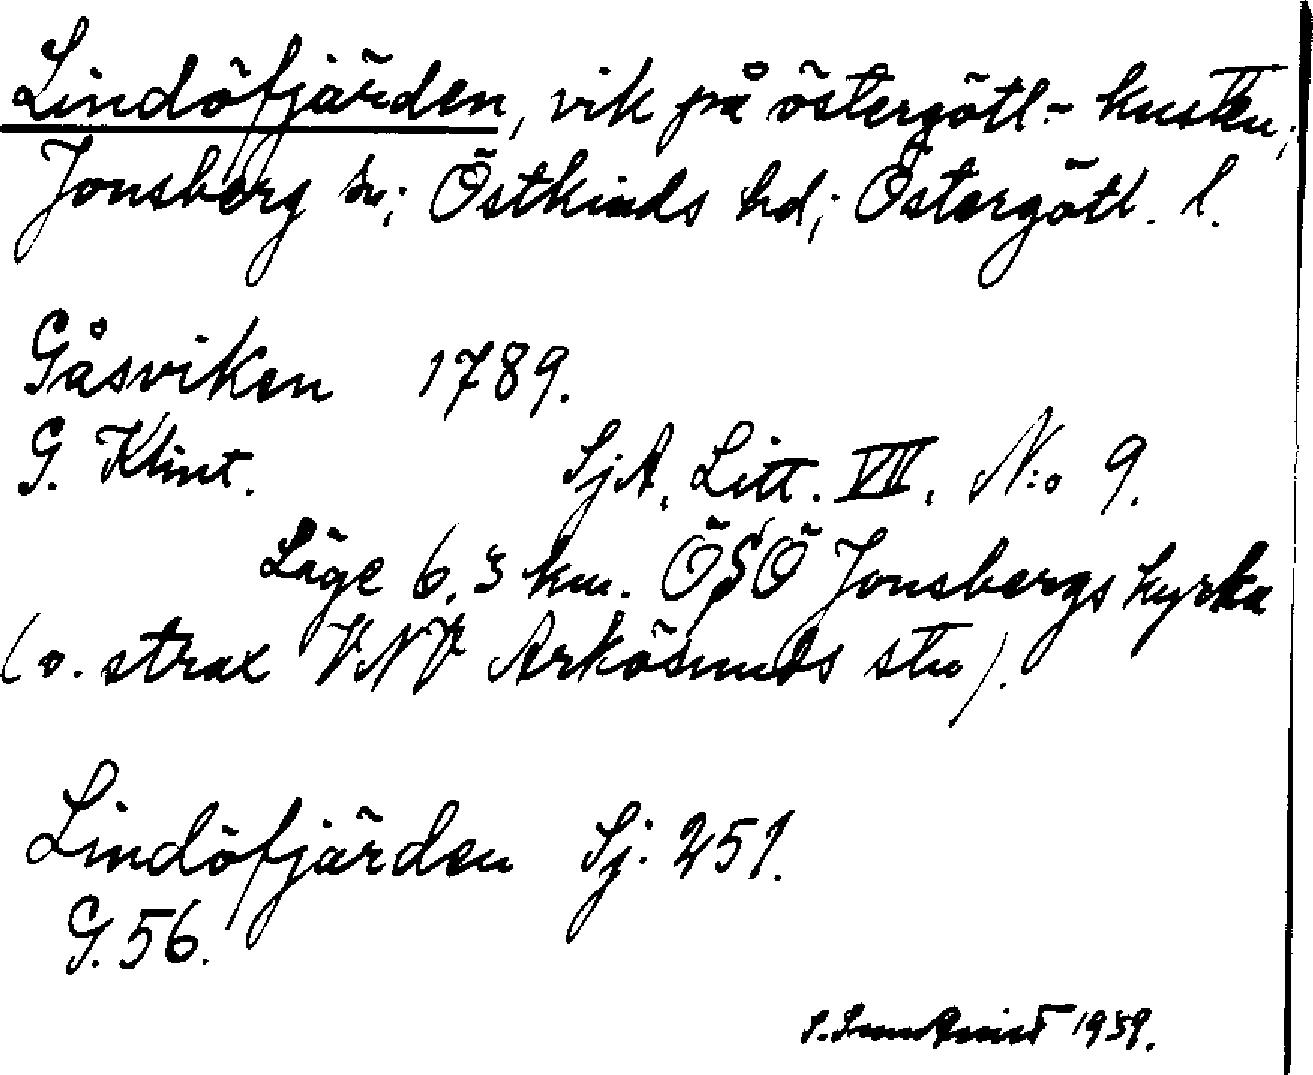 Lindöfjärden, vik på östergötl-kusten;
Jonsberg sn; Östkinds hd; Östergötl. l.
Gåsviken 1789.
G. Klint. SjA, Litt. VII, N:o 9.
Läge 6,3 km. ÖSÖ Jonsbergs kyrka
(o. strax VNV Arkösunds stn).
Lindöfjärden Sj: 251.
G. 56.
1939.